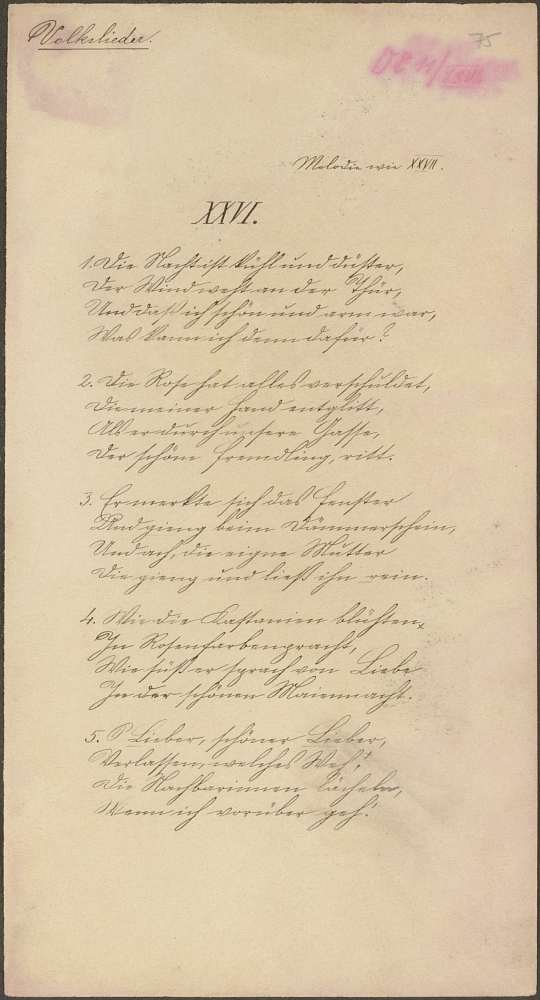 Volkslieder.
75
Melodie wie XXVII.
XXVI.
1. Die Nacht ist kühl und düster,
Der Wind weht an der Thür,
Und daß ich schön und arm war,
Was kann ich denn dafür?
2. Die Rose hat alles verschuldet,
Die meiner Hand entglitt,
Als er durch unsere Gasse,
Der schöne Fremdling, ritt.
3. Er merkte sich das Fenster
Und gieng beim Dämmerschein,
Und ach, die eigne Mutter
Die gieng und ließ ihn rein.
4. Wie die Kastanien blühten,
In Rosenfarbenpracht,
Wie süß er sprach von Liebe
In der schönen Maiennacht.
5. O Lieber, schöner Lieber,
Verlassen, welches Weh!
Die Nachbarinnen lächeln,
Wenn ich vorüber geh!